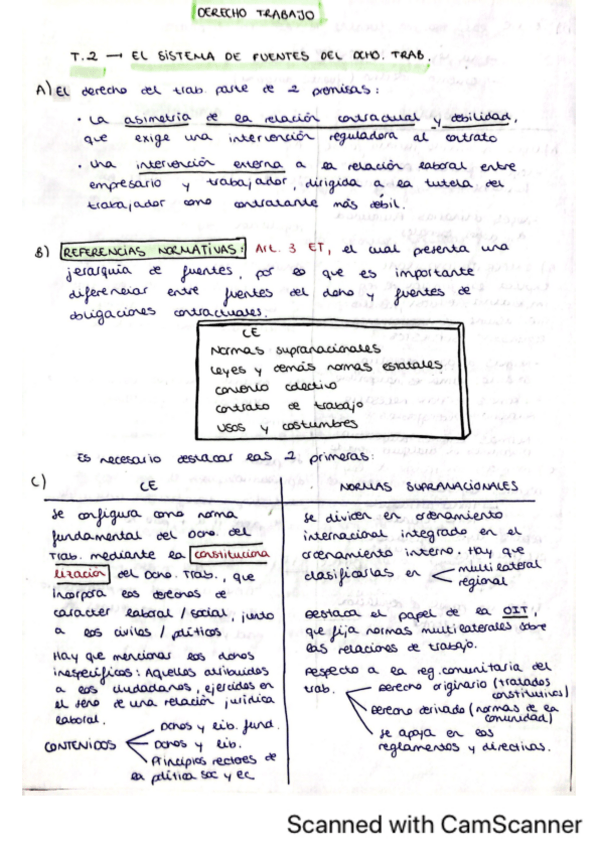 DERECHO TRABAJO
T.2 → EL SISTEMA DE FUENTES DEL DCHO. TRAB.
A) El derecho del trab. parte de 2 premisas:
· La asimetría de la relación contractual y debilidad,
que exige una intervención reguladora al contrato
· Una intervención externa a la relación laboral entre
empresario y trabajador, dirigida a la tutela del
trabajador como contratante más débil.
B) REFERENCIAS NORMATIVAS: Art. 3 ET, el cual presenta una
jerarquía de fuentes, por eso que es importante
diferenciar entre fuentes del dcho y fuentes de
obligaciones contractuales.
CE
Normas supranacionales
Leyes y demás normas estatales
convenio colectivo
contrato de trabajo
usos y costumbres
Es necesario destacar las 2 primeras:
C) CE
Se configura como norma
fundamental del Dcho. del
Trab. mediante la constituciona
lización del Dcho. Trab., que
incorpora los derechos de
carácter laboral / social, junto
a los civiles / políticos
Hay que mencionar los dchos
inespecíficos: Aquellos atribuidos
a los ciudadanos, ejercidos en
el seno de una relación jurídica
laboral.
CONTENIDOS
Dchos y lib. fund.
Dchos y lib.
Principios rectores de
la política soc y ec
NORMAS SUPRANACIONALES
Se divide en ordenamiento
internacional integrado en el
ordenamiento interno. Hay que
clasificarlas en
multilateral
regional
Destaca el papel de la OIT,
que fija normas multilaterales sobre
las relaciones de trabajo.
Respecto a la reg. comunitaria del
trab.
Derecho originario (tratados
constitutivos)
Derecho derivado (normas de la
comunidad)
Se apoya en los
reglamentos y directivas.
Scanned with CamScanner